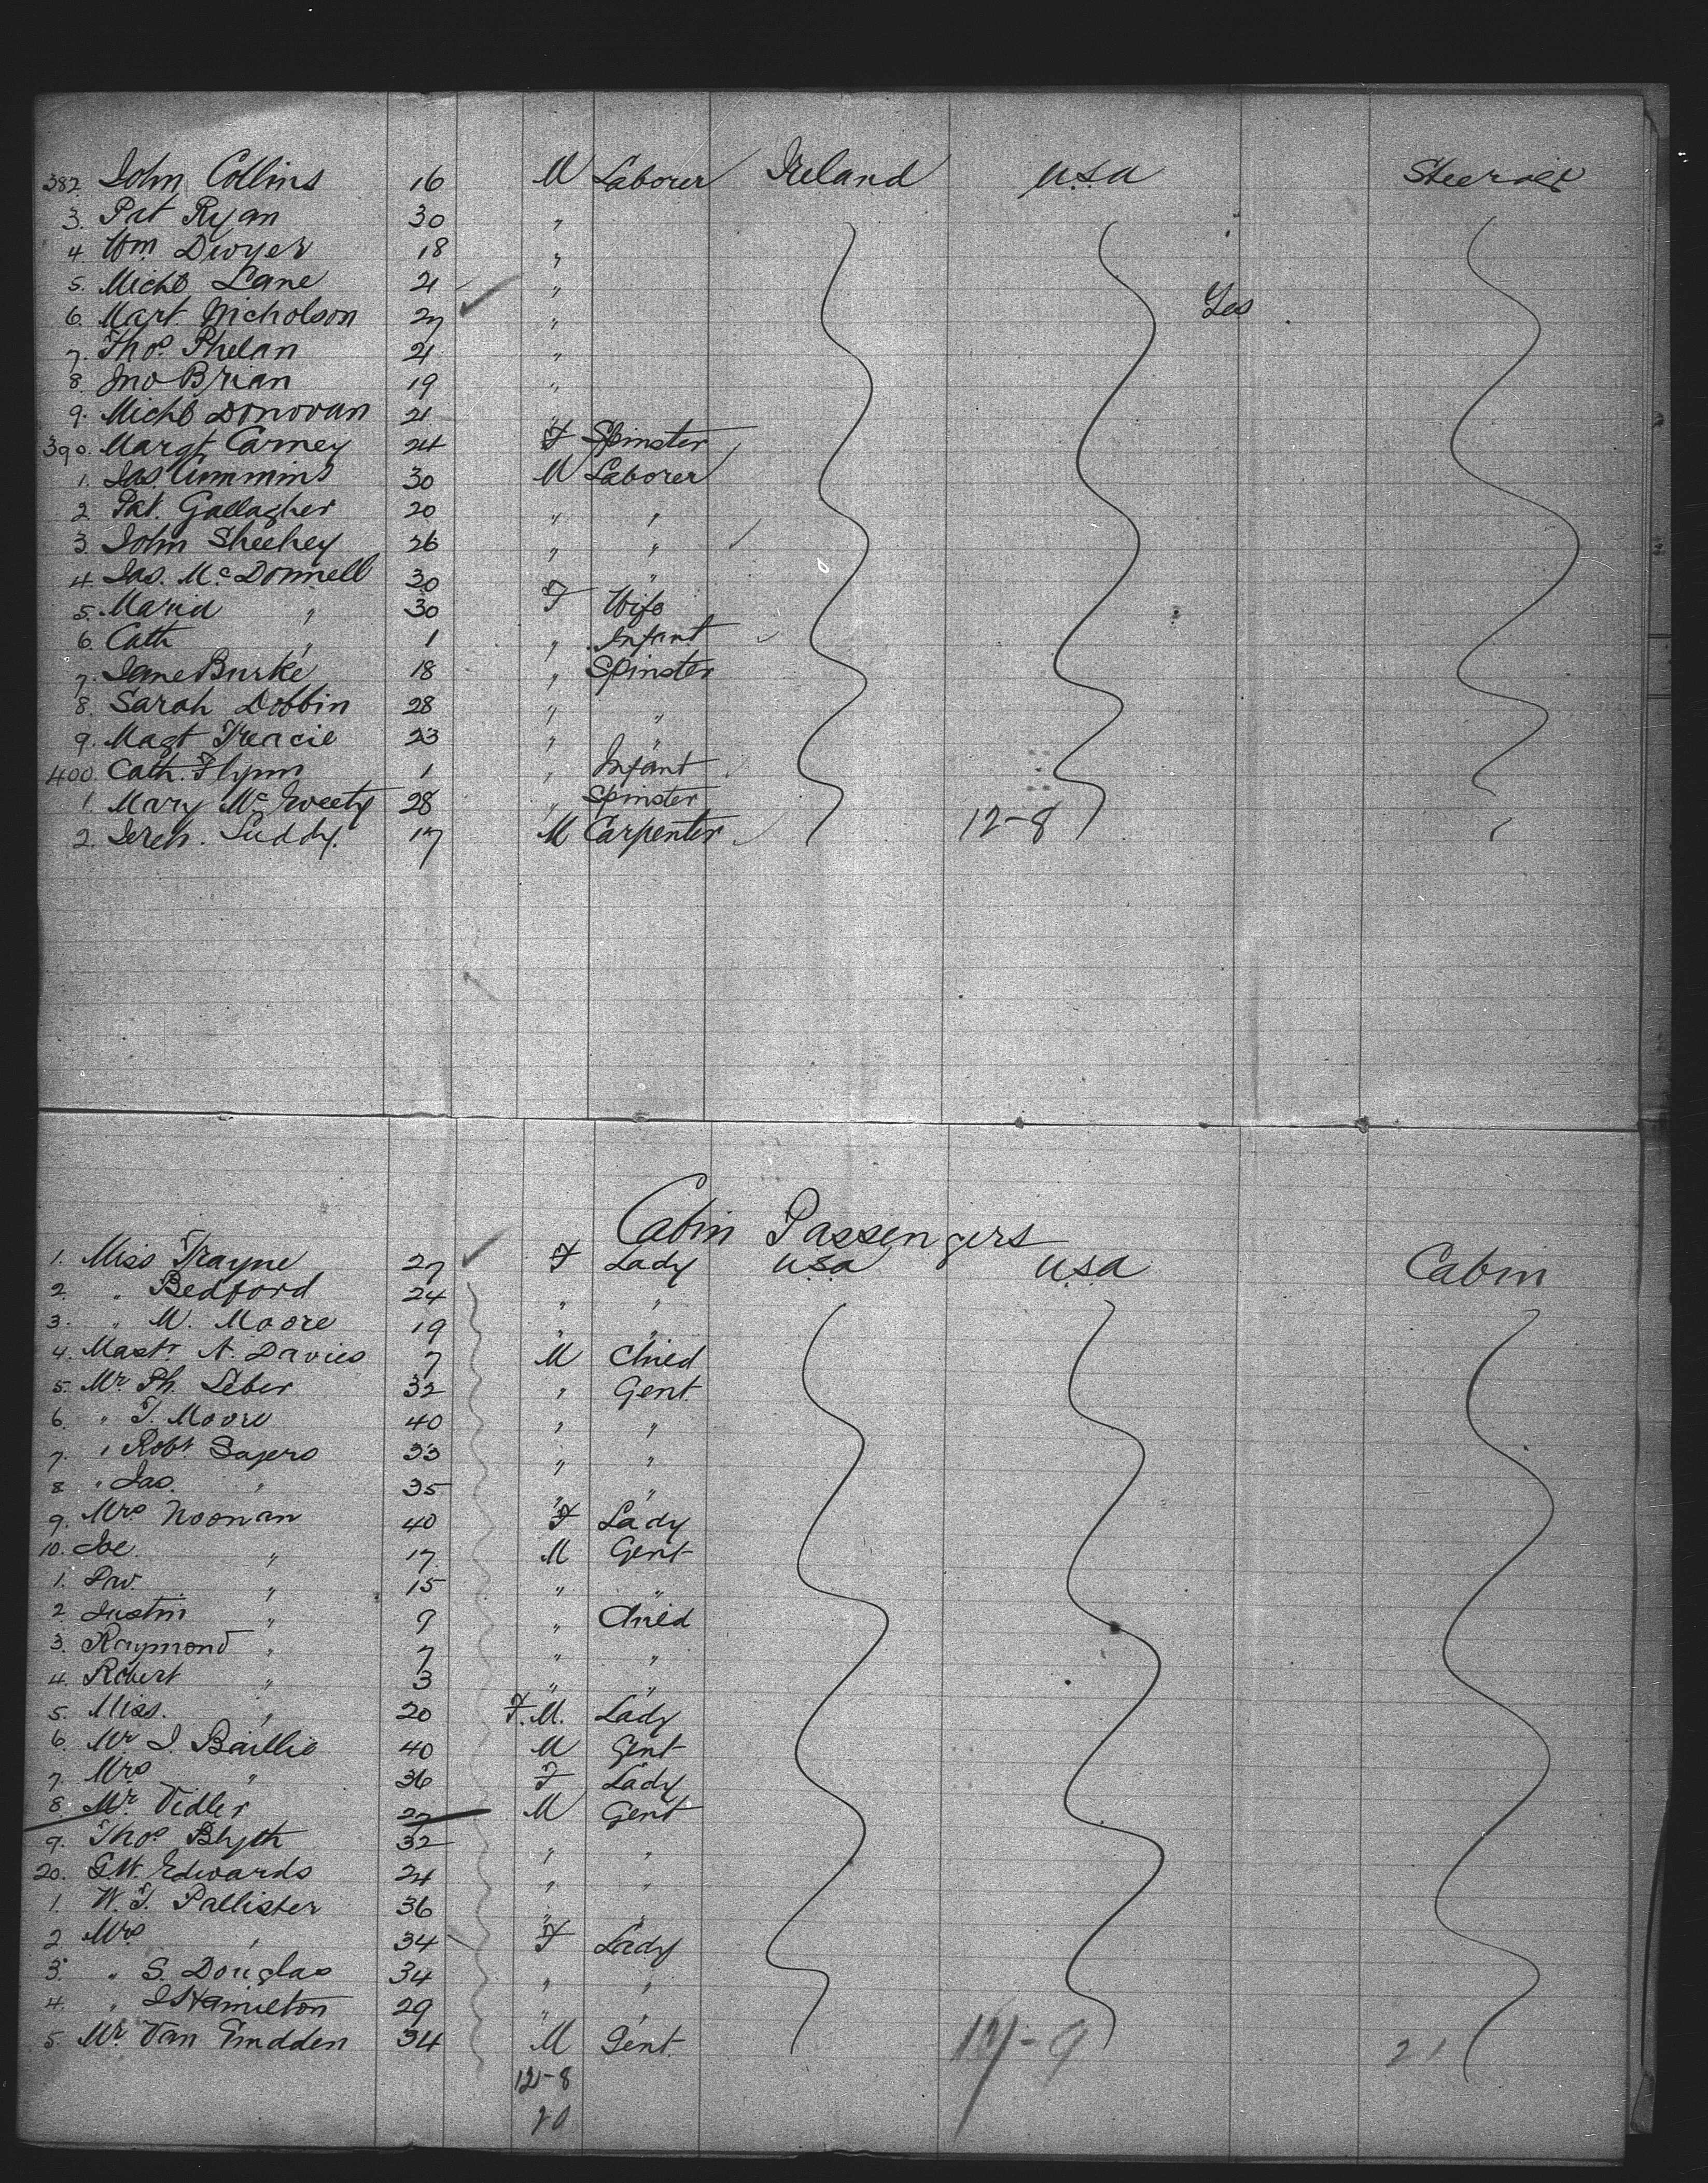 382. John Collins 16 M Laborer Ireland U.S.A Steerage
3. Pat Ryan 30 "
4. Wm Dwyer 18 "
5. Michl Lane 21 "
6. Mart. Nicholson 27 " Yes
7. Thos Phelan 21 "
8. Jno Brian 19 "
9. Michl Donovan 21 "
390. Margt Carney 24 F Spinster
1. Jas Cummins 30 M Laborer
2 Pat. Gallagher 20 " "
3. John Sheehey 26 " "
4. Jas. McDonnell 30 "
5. Maria " 30 F Wife
6. Cath " 1 " Infant
7. Jane Burke 18 " Spinster
8. Sarah Dobbin 28 " "
9. Magt Treacie 23 " "
400. Cath. Flynn 1 " Infant
1. Mary 28 " Spinster
2. Jereh. Luddy. 17 M Carpenter 12-8
Cabin Passengers
1. Miss Trayne 27 F Lady USA U.S.A Cabin
2. " Bedford 24 " "
3. " M. Moore 19 " "
4. Mastr A. Davies 7 M Child
5. Mr Ph. Leber 32 " Gent
6. " T. Moore 40 " "
7. " Robt Sagers 33 " "
8 " Jas. " 35 " "
9. Mrs Noonan 40 F Lady
10. Joe. " 17 M Gent
1. " 15 " "
2. Justin " 9 " Child
3. Raymond " 7 " "
4. Robert " 3 " "
5. Miss. " 20 F. M. Lady
6. Mr J. Baillie 40 M Gent
7. Mrs " 36 F Lady
8. Mr. Vidler 27 M Gent
9. Thos Blyth 32 " "
20. G.W. Edwards 24 " "
1. W. T. Pallister 36 " "
2 Mrs " 34 F Lady
3. " S. Douglas 34 " "
4. " J Hamilton 29 " "
5. Mr Van Emdden 34 M Gent. 17-9 21
12-8
20